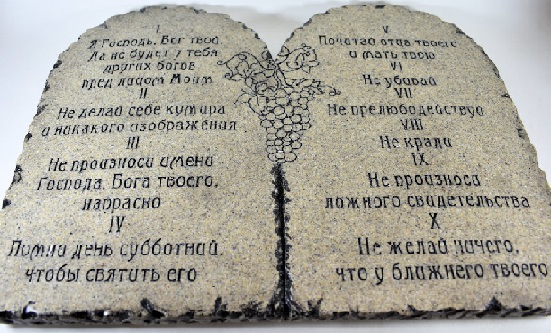 I
Я Господь, Бог твой
Да не будет у тебя
других богов
пред лицом Моим
II
Не делай себе кумира
и никакого изображения
III
Не произноси имени
Господа, Бога твоего,
напрасно
IV
Помни день субботний,
чтобы святить его
V
Почитай отца твоего
и мать твою
VI
Не убивай
VII
Не прелюбодействуй
VIII
Не кради
IX
Не произноси
ложного свидетельства
X
Не желай ничего,
что у ближнего твоего